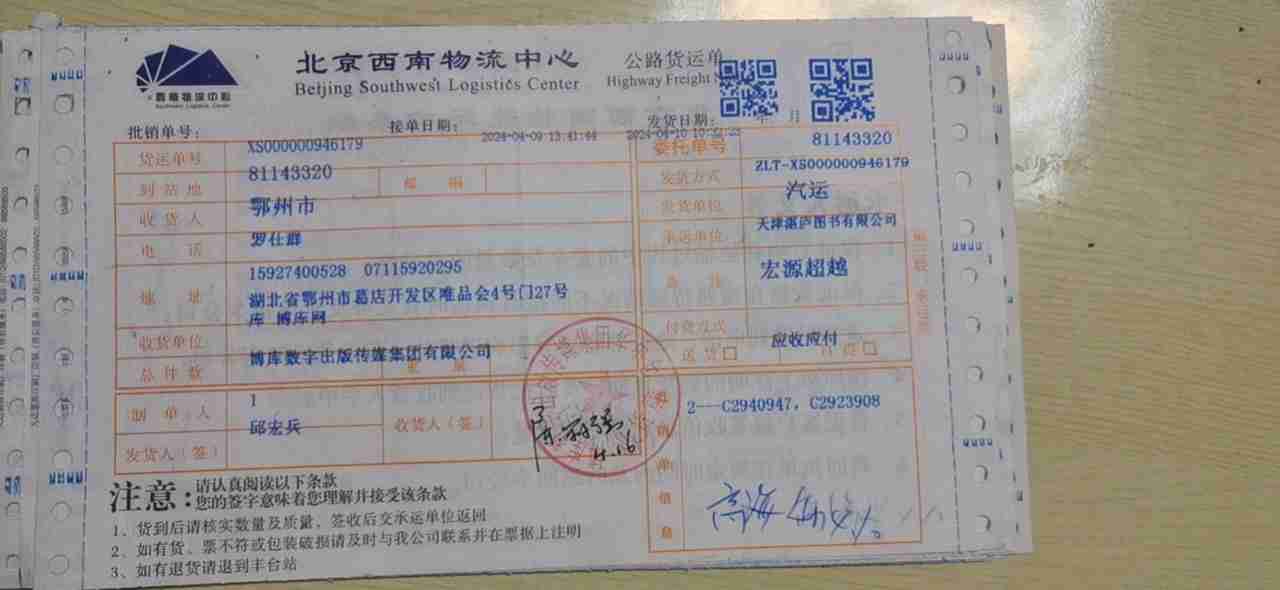 西南物流中心
Southwest Logistics Center
北京西南物流中心
Beijing Southwest Logistics Center
公路货运单
Highway Freight
批销单号：
接单日期：
2024-04-09 13:41:44
发货日期：
年 月
2024-04-10
货运单号
XS000000946179
委托单号
81143320
到站地
81143320
邮 编
发货方式
ZLT-XS000000946179
收货人
鄂州市
发货单位
汽运
电 话
罗仕群
承运单位
天津湛庐图书有限公司
地 址
15927400528 07115920295
湖北省鄂州市葛店开发区唯品会4号门27号
库 博库网
宏源超越
收货单位
博库数字出版传媒集团有限公司
付款方式
应收应付
总件数
送货□
制单人
1
收货人（签）
4.16
2---C2940947, C2923908
发货人（签）
邱宏兵
注意：
请认真阅读以下条款
您的签字意味着您理解并接受该条款
1、货到后请核实数量及质量，签收后交承运单位返回
2、如有货、票不符或包装破损请及时与我公司联系并在票据上注明
3、如有退货请退到丰台站